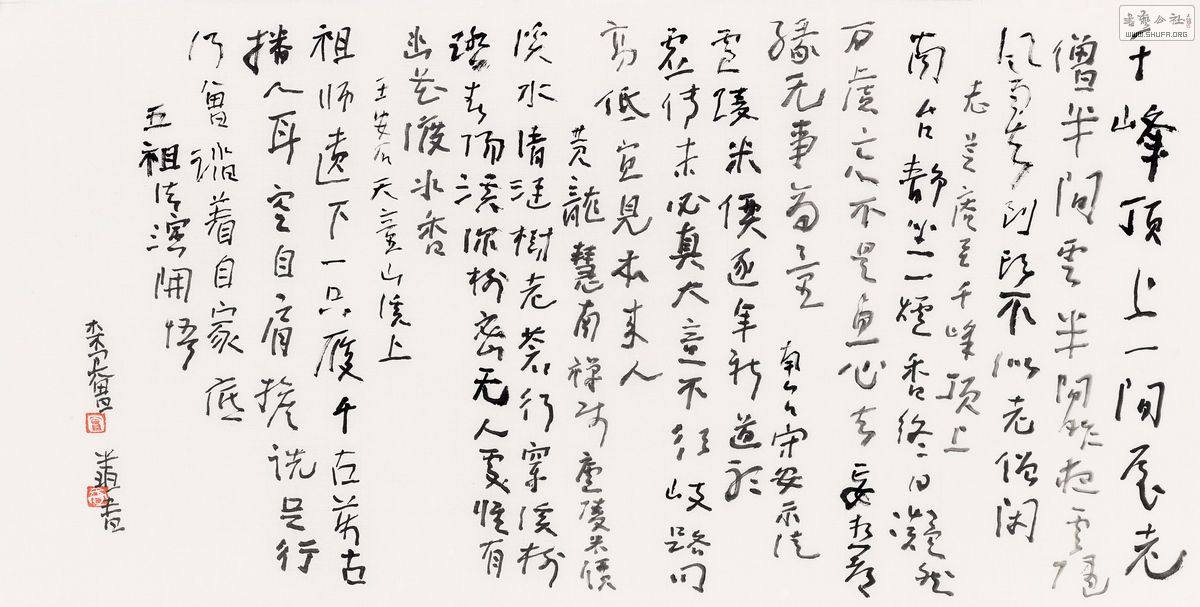 千峰顶上一间屋老
僧半间雲半间昨夜雲随
风雨去到头不似老僧闲
志芝庵主千峰顶上
南台静坐一炉香终日凝然
万虑亡不是息心去妄想都
缘无事可商量
南台守安示徒
卢陵米價逐年新道听
虚传未必真大意不须岐路问
高低宜见本来人
黄龍慧南禅师卢陵米價
溪水清涟树老苍行穿溪树
踏春阳溪深树密无人处惟有
幽花渡水香
王安石天童山溪上
祖师遗下一只履千古万古
播人耳空自肩擔跣足行
何曾踏着自家底
五祖法演開悟
書藝公社
WWW.SHUFA.ORG